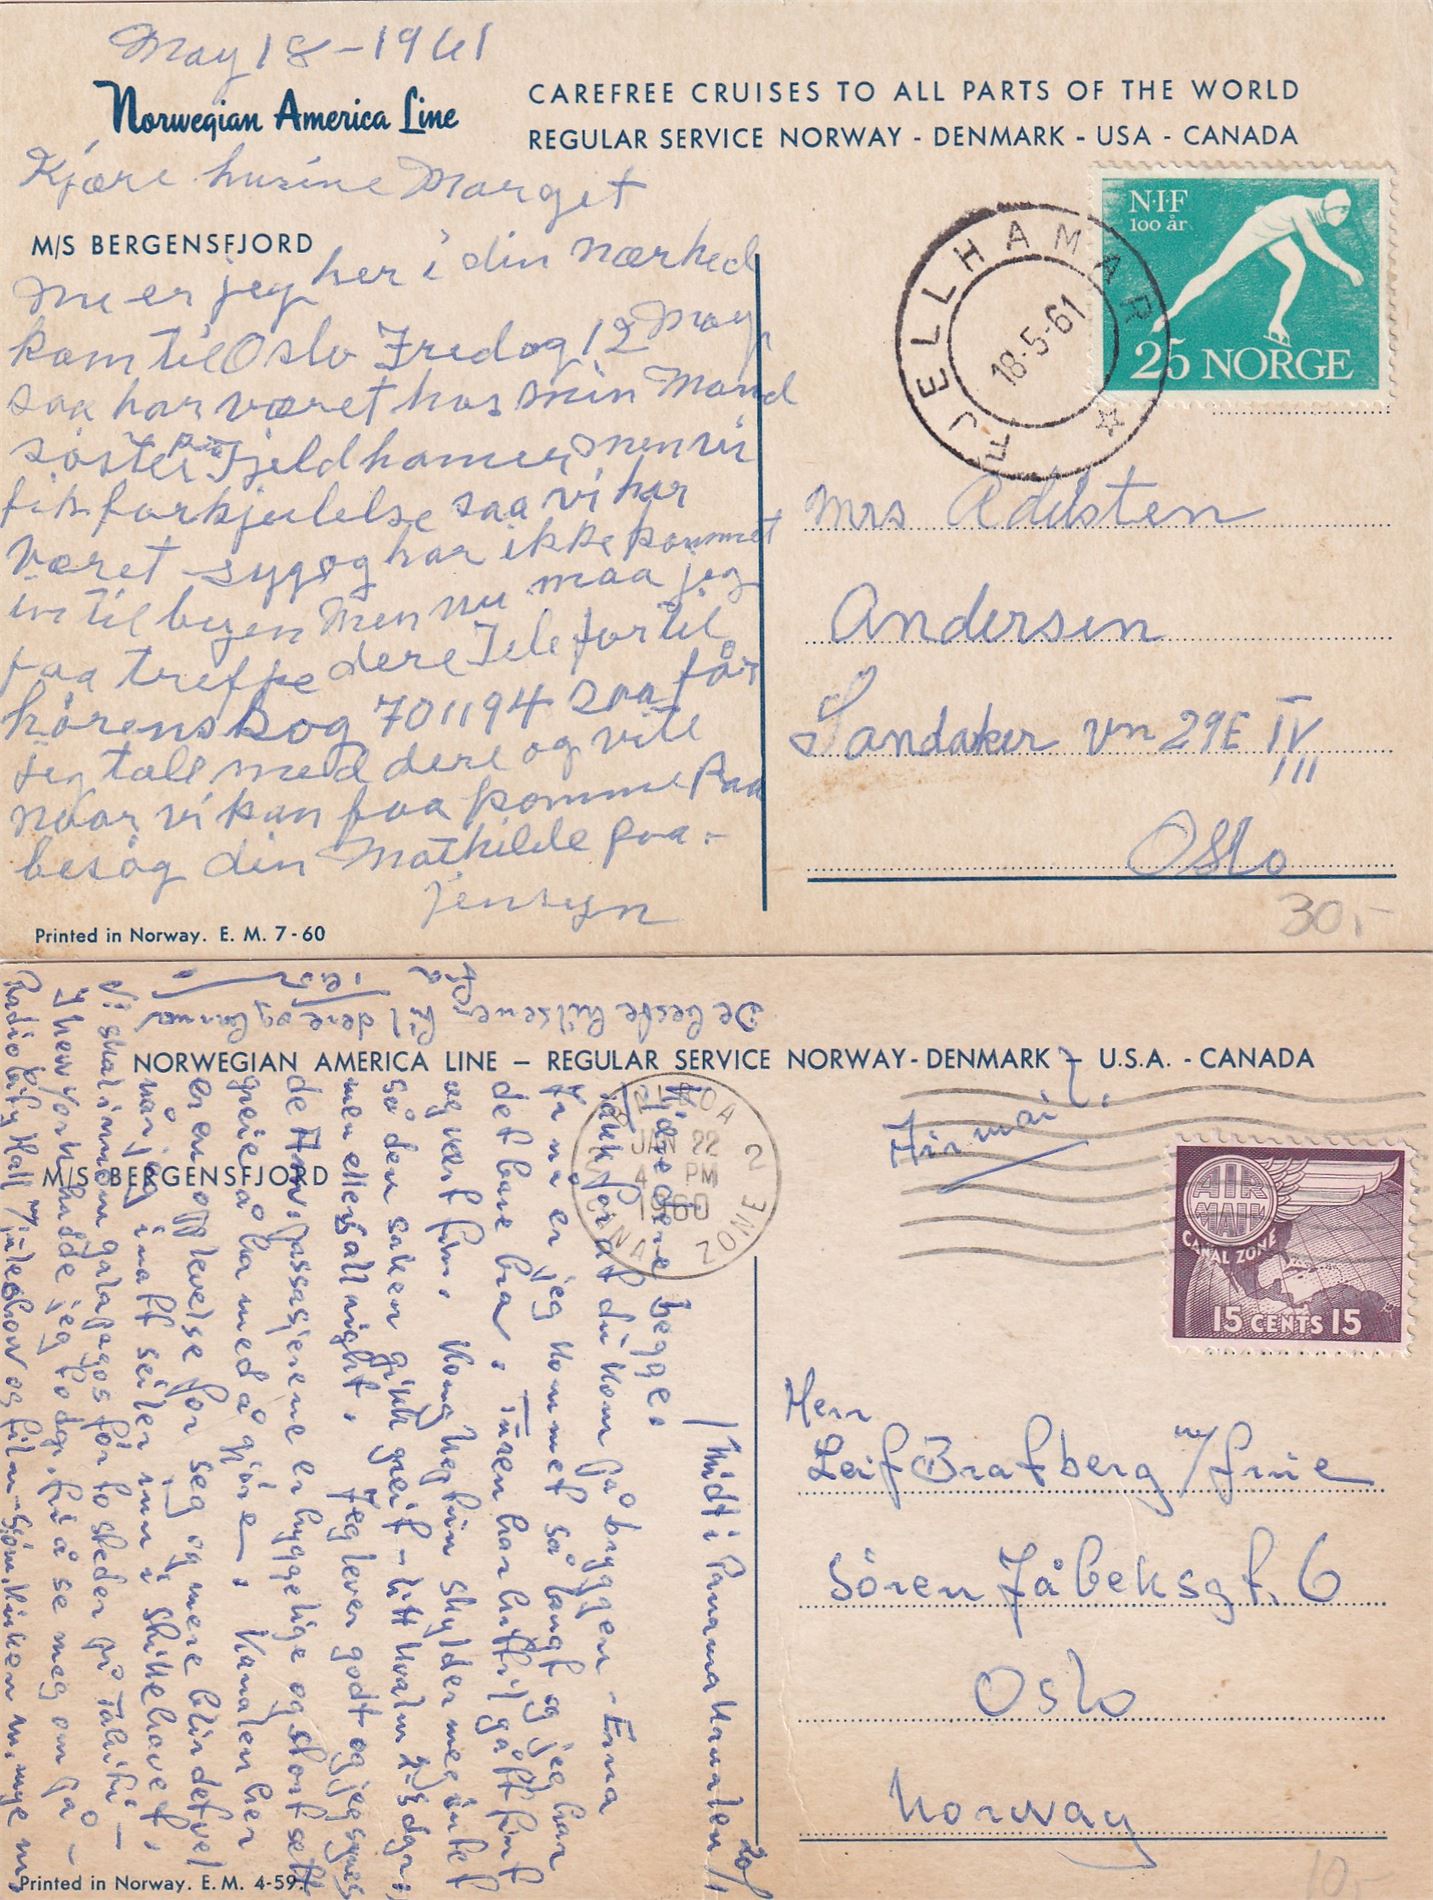 May 18 - 1961
Norwegian America Line
CAREFREE CRUISES TO ALL PARTS OF THE WORLD
REGULAR SERVICE NORWAY - DENMARK - USA - CANADA
Kjære Marget
M/S BERGENSFJORD
nu er jeg her i din nærhed
kom til Oslo Fredag 12 May
saa har været hos min Mand
søster Fjeldhamer men vi
fik forkjølelse saa vi har
været syg og har ikke kommet
in til byen Men nu maa jeg
faa treffe dere Telefor til
hörenskog 701194 saa får
jeg tale med dere og vite
naar vi kan faa komme Paa
besög din Mathilde
N·I·F
100 år
25 NORGE
FJELLHAMAR
18-5-61
Mrs
Andersen
Sandaker vn 29E IV
III
Oslo
30,-
Printed in Norway. E. M. 7-60
De beste hilsener til dere og
fra
NORWEGIAN AMERICA LINE – REGULAR SERVICE NORWAY - DENMARK – U.S.A. - CANADA
M/S BERGENSFJORD
/Midt i Panamakanalen/ 20/1
Kjære dere begge.
Takk for at du kom på bryggen -
Ja nå er jeg kommet så langt og jeg har
det bare bra. Turen har hittil gått fint
og været fin. Kong Neptun skylder meg intet
så den saken gikk greit - litt kvalm
men ellers all right. Jeg lever godt og jeg synes
de Am. passasjerene er hyggelige og stort sett
greie å ha med å gjøre. Kanalen her
er en opplevelse for seg og mere blir det vel
når jeg i natt seiler inn i stillehavet.
Vi skal innom galapagos før to steder på Tahiti -
I New York hadde jeg to dgr. fri å se meg om på -
Radio City Hall m/ juleshow og film
BALBOA 2
JAN 22
4 PM
1960
CANAL ZONE
Air mail.
AIR
MAIL
CANAL ZONE
15 CENTS 15
Herr
Leif Bratberg m/frue
Sören Jåbeksgt. 6
Oslo
Norway
10,-
Printed in Norway. E. M. 4-59.